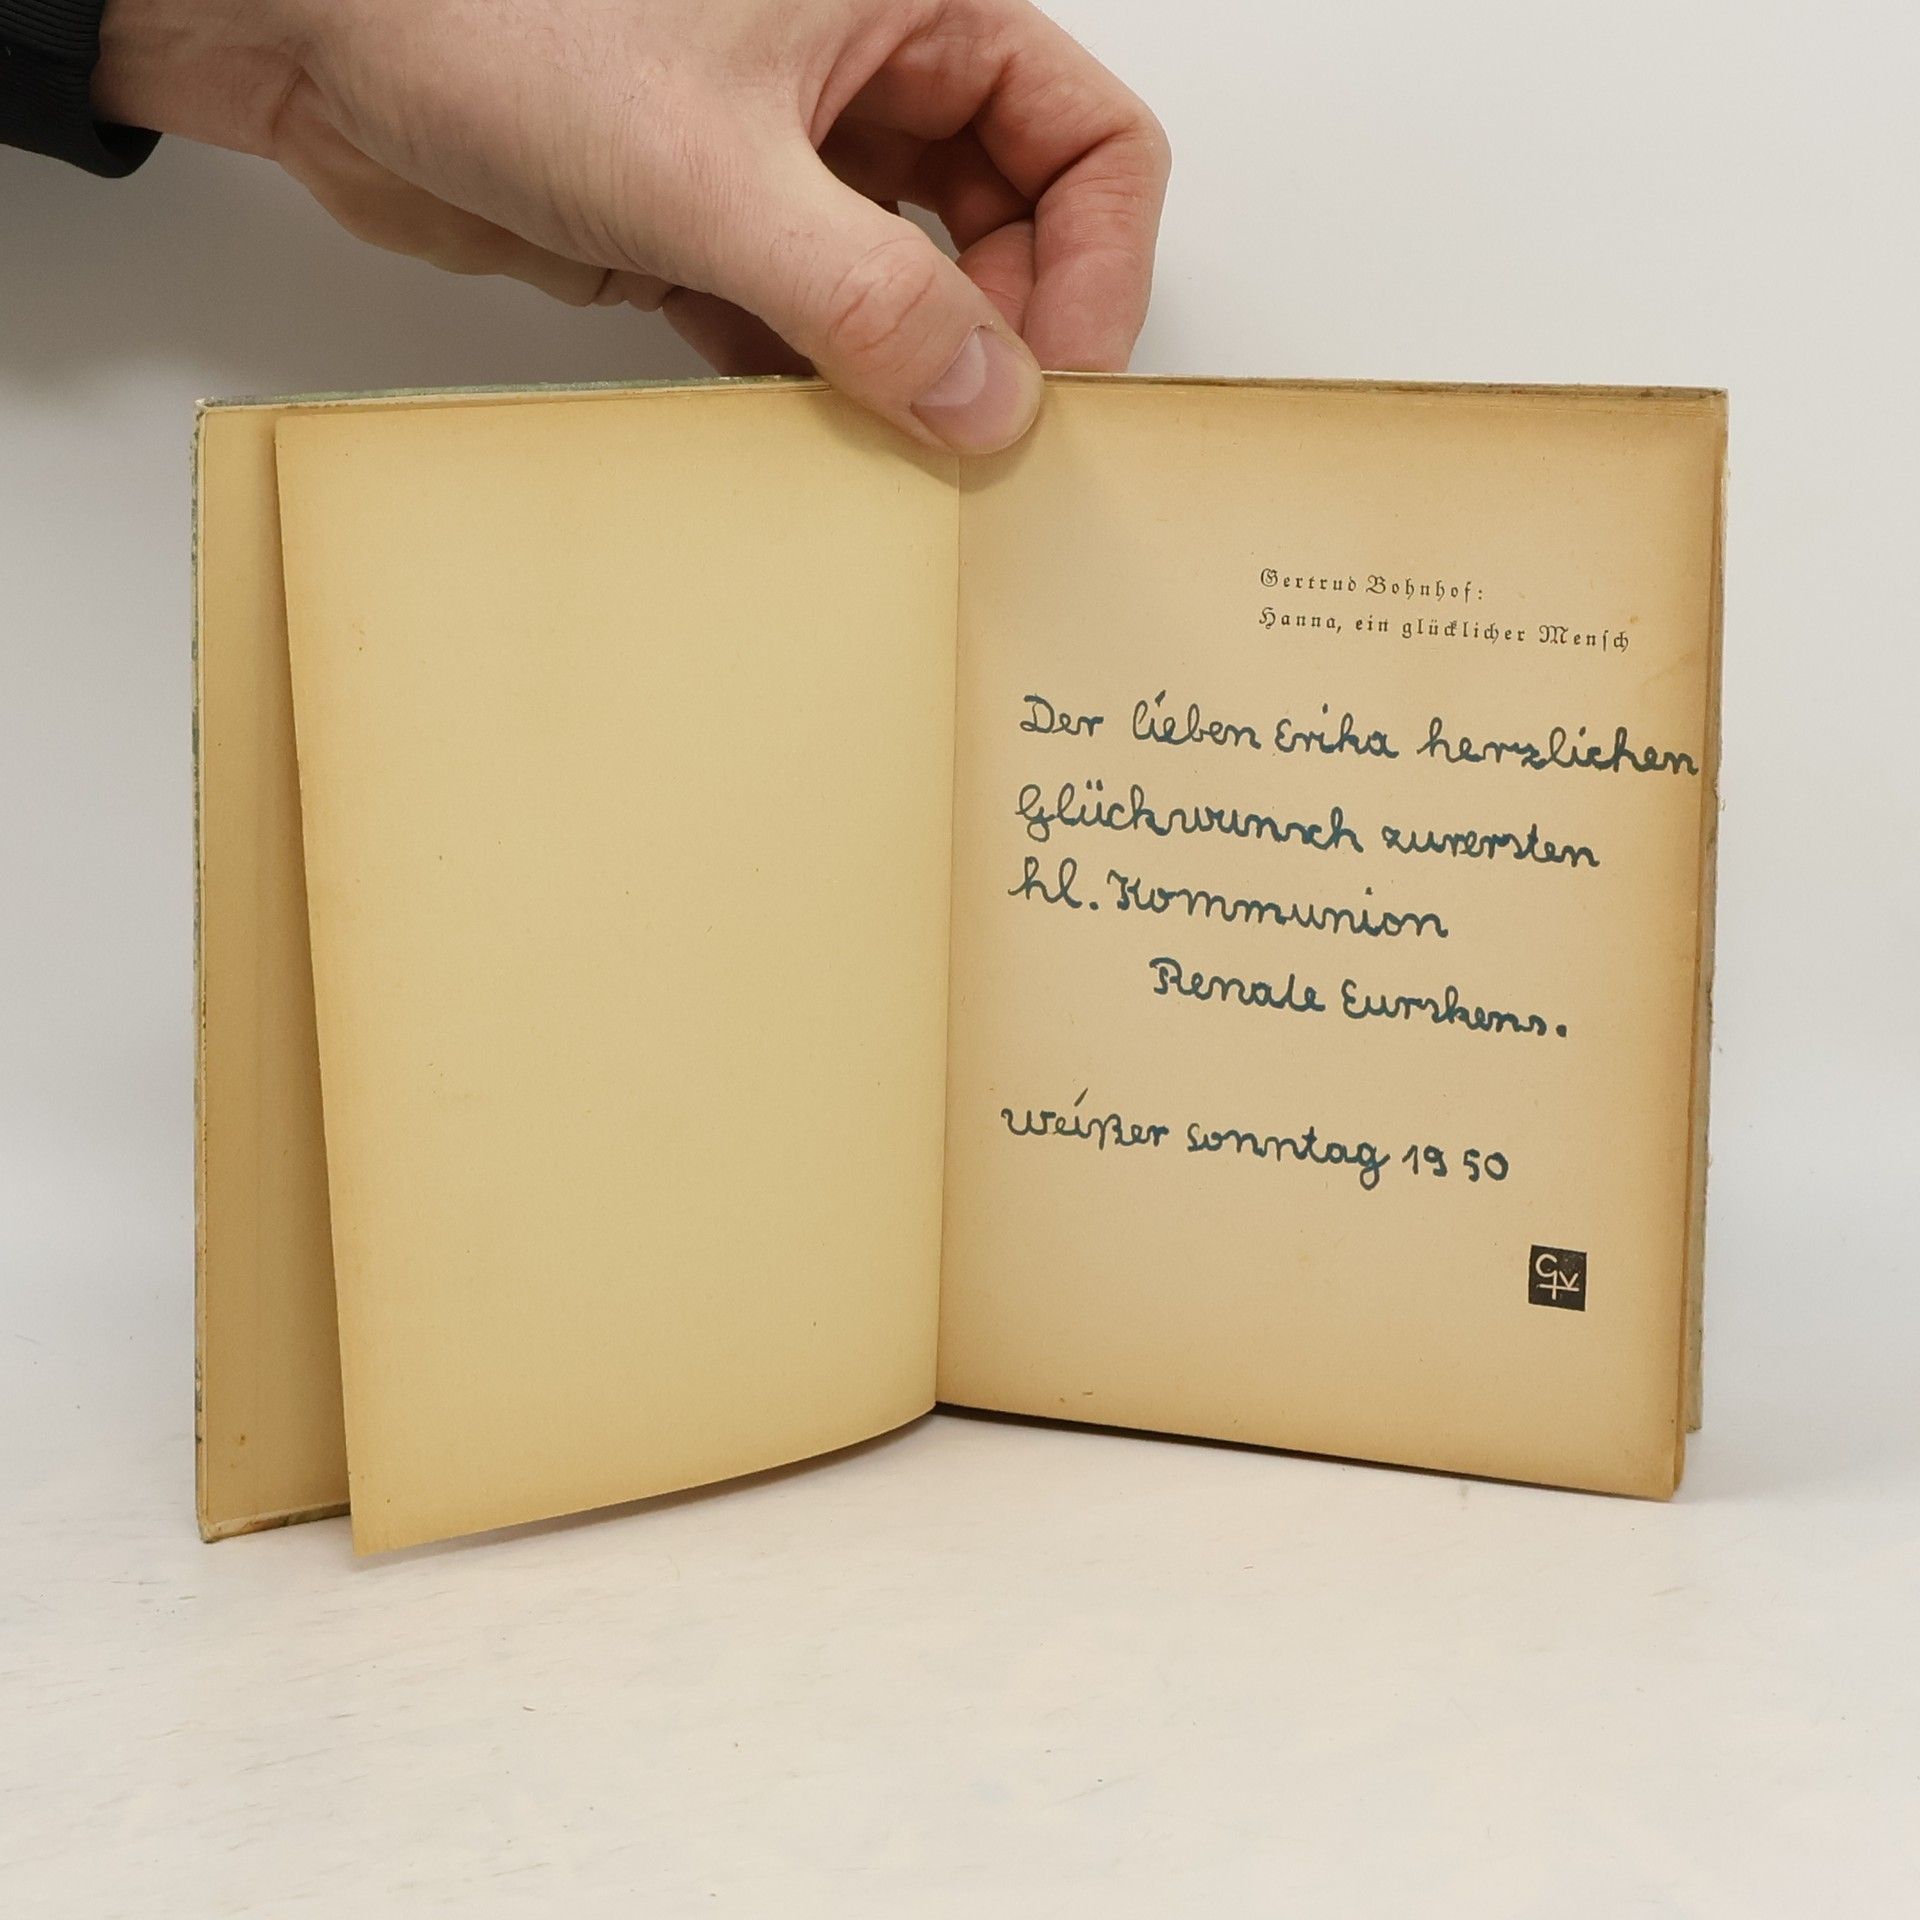 Gertrud Bohnhof:
Hanna, ein glücklicher Mensch
Der lieben Erika herzlichen
Glückwunsch zurersten
hl. Kommunion
Renate Eurskens.
weißer sonntag 1950
GV